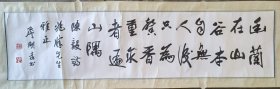 幽兰
在山
谷本
自無
人識
只為
馨香
重求
者遍
山隅
陳毅詩
先生
雅正